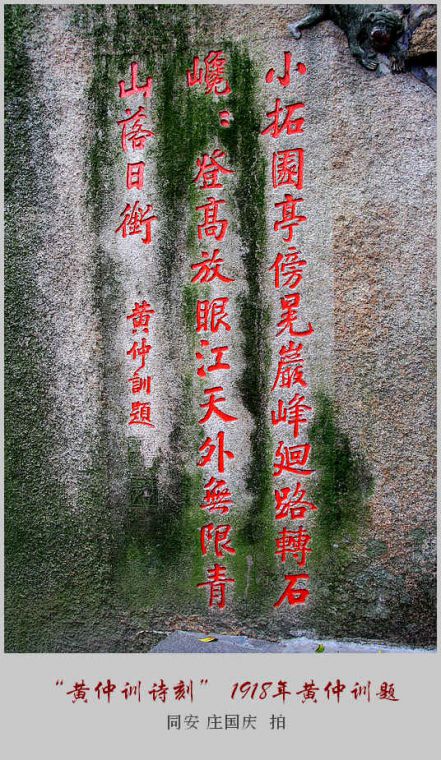 小拓園亭傍晃巖峰廻路轉石
巉〻登高放眼江天外無限青
山落日銜
黄仲訓題
“黄仲训诗刻” 1918年黄仲训题
同安 庄国庆 拍